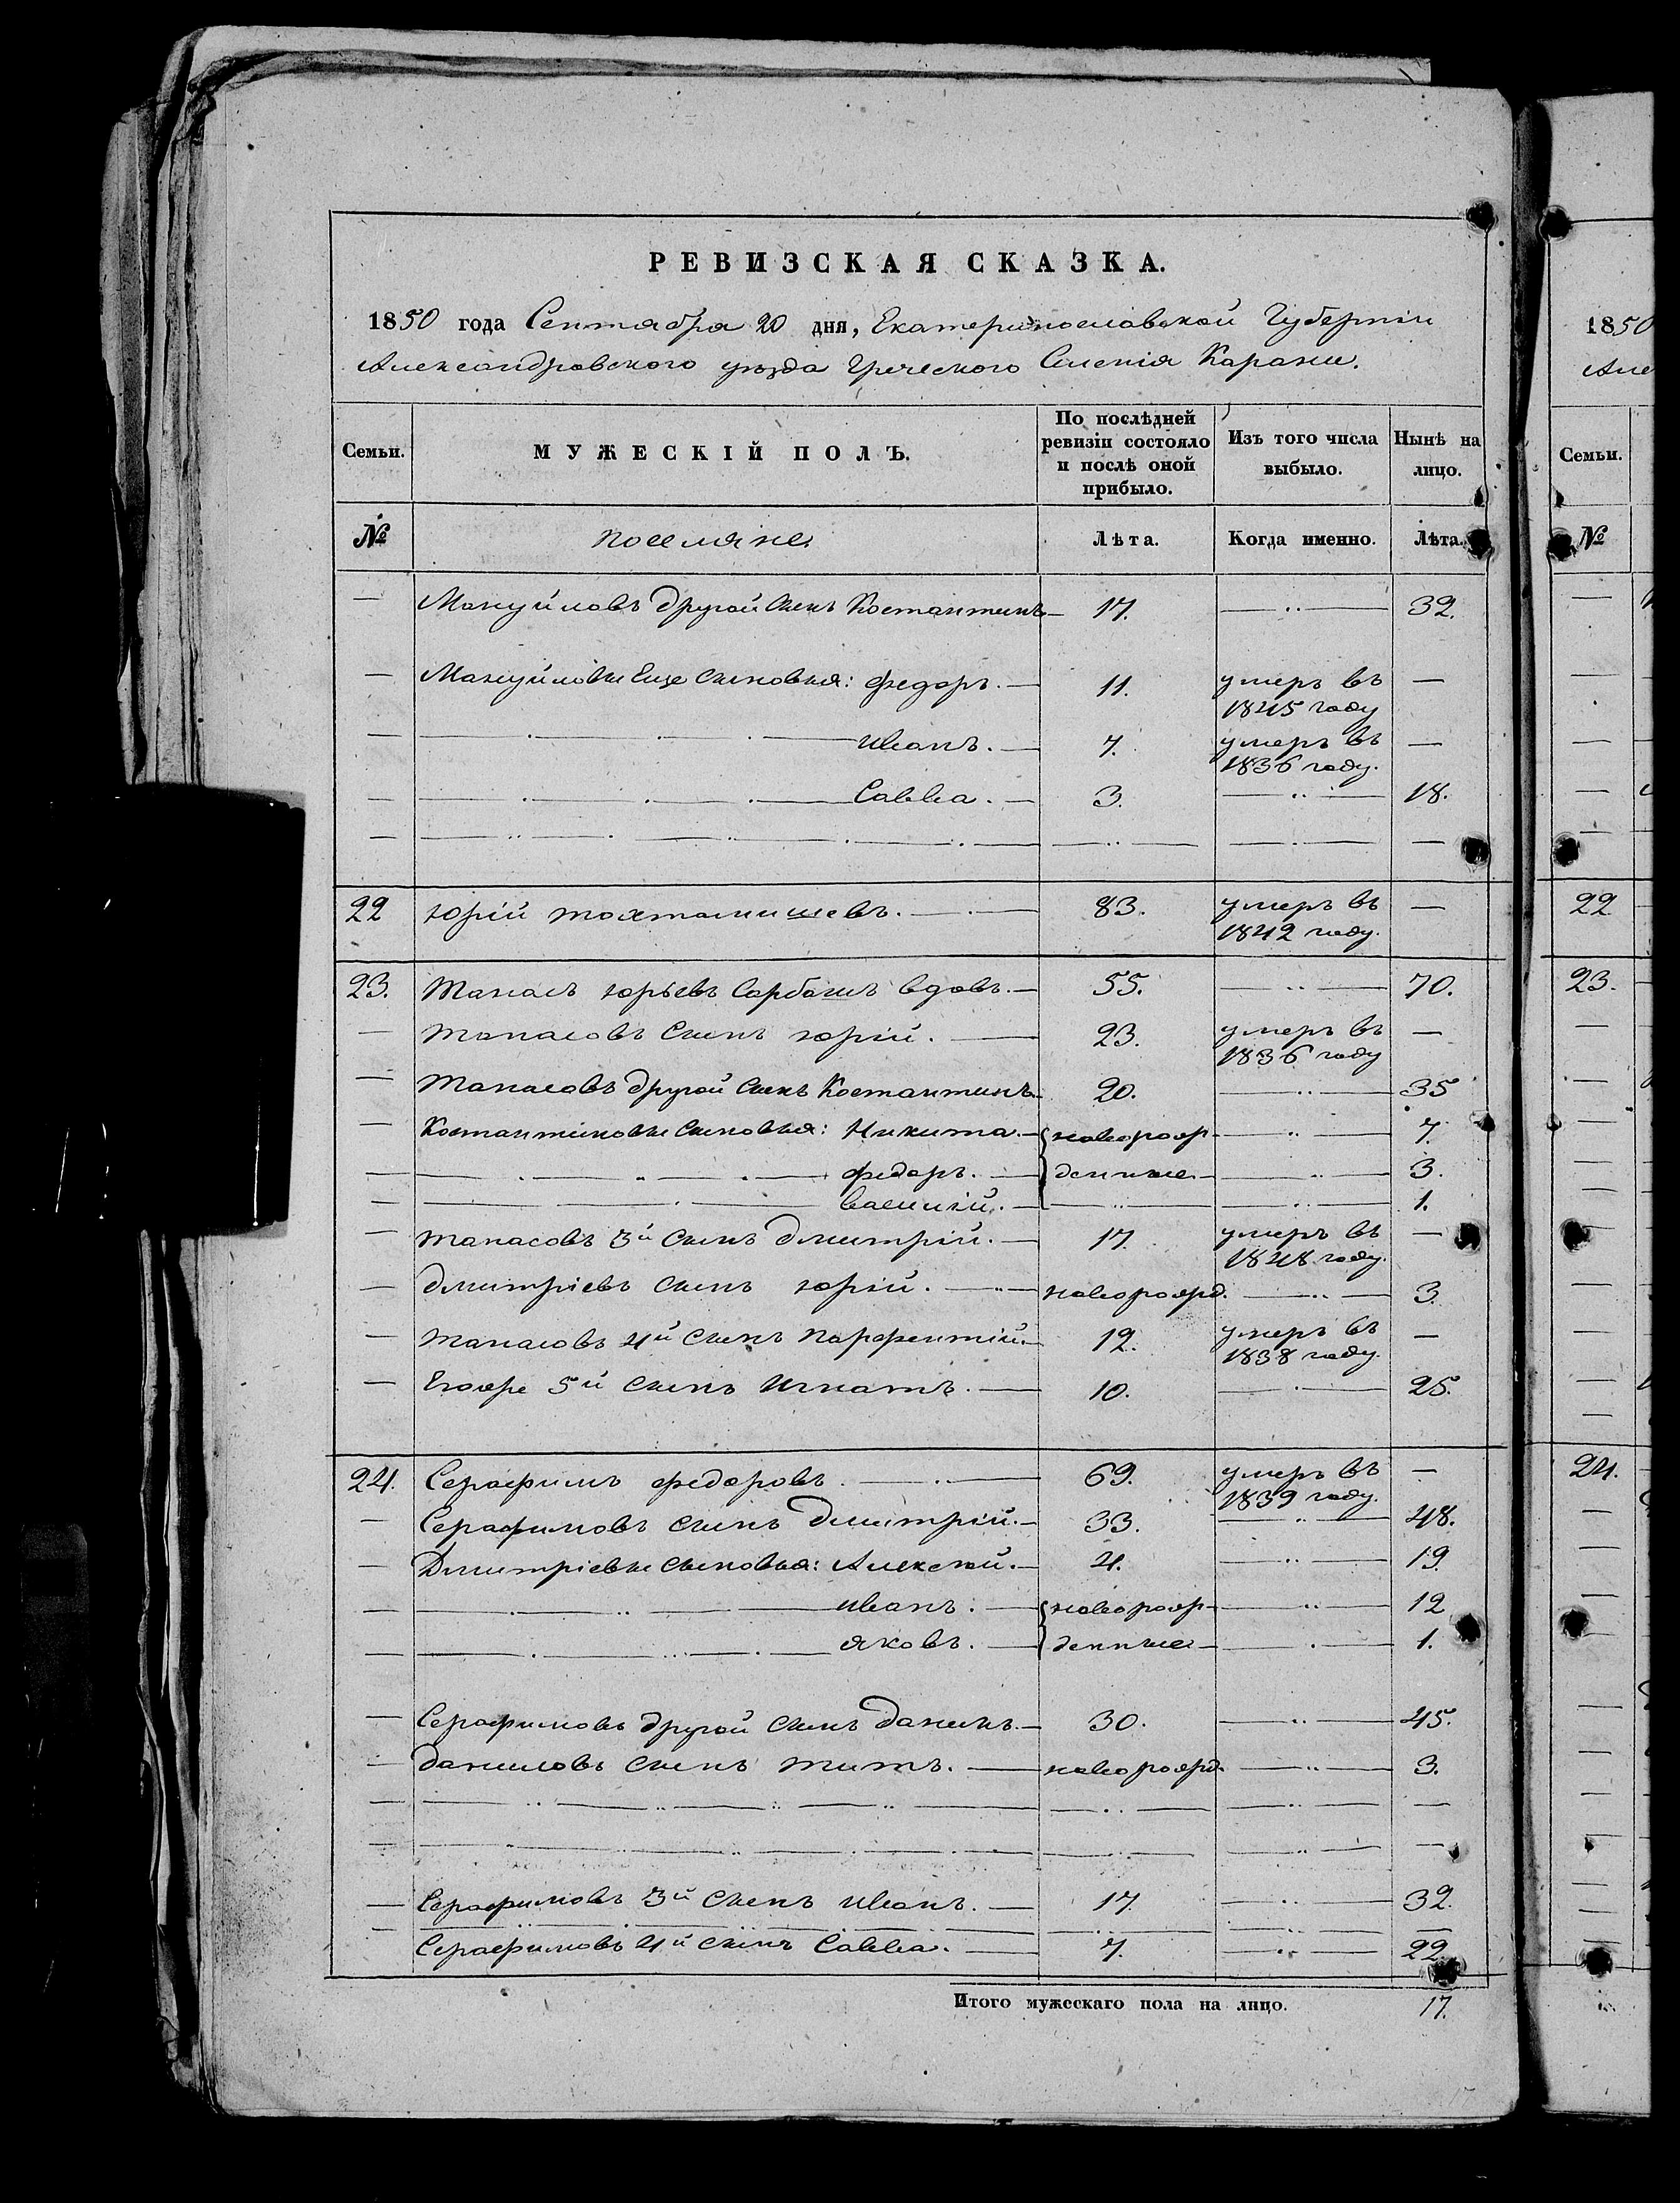 РЕВИЗСКАЯ СКАЗКА.
1850 года Сентября 20 дня, Екатеринославской Губернiи
Александровского уѣзда Греческого Селенiя Карани.
Семьи. МУЖЕСКIЙ ПОЛЪ. По послѣдней ревизiи состояло и послѣ оной прибыло. Изъ того числа выбыло. Нынѣ на лицо.
№ поселяне Лѣта. Когда именно. Лѣта.
— Мануйловъ другой сынъ Костантинъ — 17. — 32.
— Мануйловы Еще сыновья: федоръ. — 11. умеръ въ 1845 году —
— иванъ. — 7. умеръ въ 1836 году. —
— Савва. — 3. — 18.
22 юрiй тохтамишевъ. — 83. умеръ въ 1842 году. —
23. Танасъ юрьевъ Сарбашъ вдовъ. — 55. — 70.
— Танасовъ Сынъ юрiй. — 23. умеръ въ 1836 году —
— Танасовъ другой сынъ Костантинъ — 20. — 35
— Костантиновы сыновья: Никита. — новорож- — 7.
— федоръ. — денные — 3.
— василiй. — 1.
— танасовъ 3й сынъ дмитрiй. — 17. умеръ въ 1848 году. —
— дмитрiевъ сынъ юрiй. — новорожд. — 3.
— танасовъ 4й сынъ парфентiй. — 12. умеръ въ 1838 году. —
— Егоже 5й сынъ игнатъ. — 10. — 25.
24. Серафимъ федоровъ. — 69. умеръ въ 1839 году. —
— Серафимовъ сынъ дмитрiй. — 33. — 48.
— Дмитрiевы сыновья: Алексѣй. — 4. — 19.
— иванъ. — новорож- — 12
— яковъ. — денные — 1.
— Серафимовъ другой сынъ данилъ. — 30. — 45.
— даниловъ сынъ титъ. — новорожд. — 3.
— Серафимовъ 3й сынъ иванъ. — 17. — 32.
— Серафимовъ 4й сынъ Савва. — 7. — 22.
Итого мужескаго пола на лицо. 17.
1850
Але
Семьи.
№
22
23.
24.